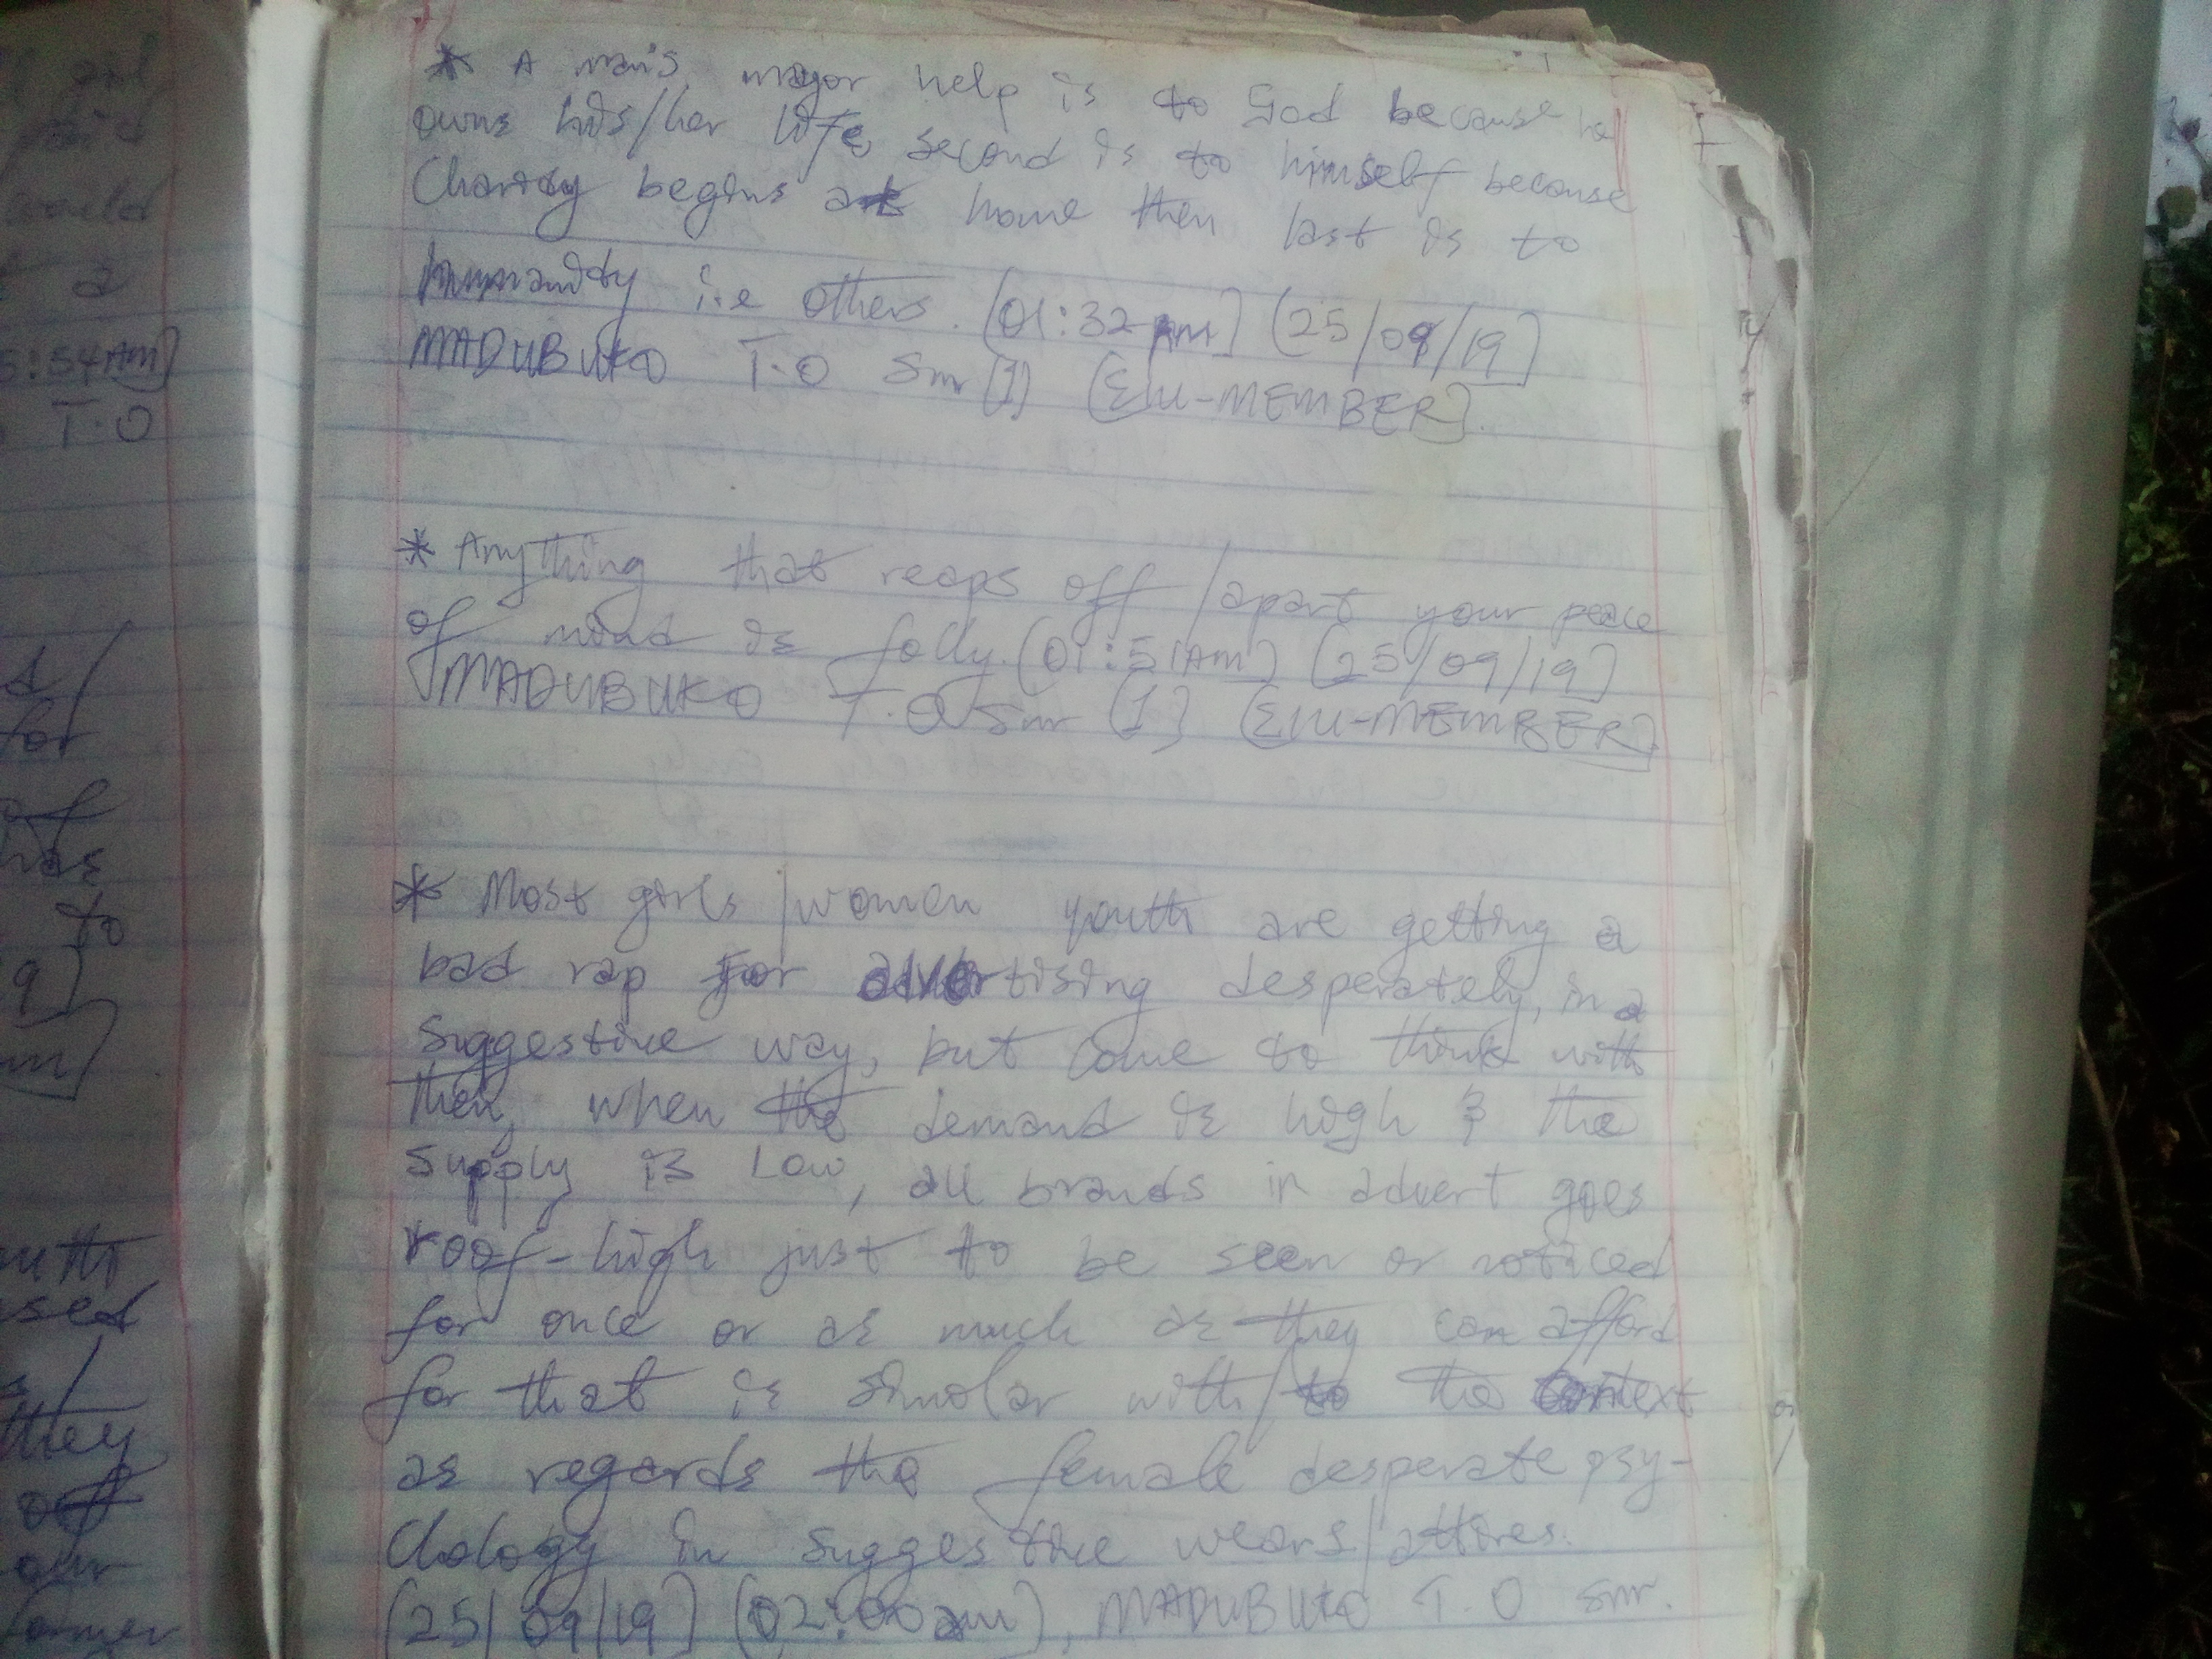 * A man's major help is to God because he
owns his/her life, second is to himself because
Charity begins at home then last is to
humanity i.e others. (01:32am) (25/09/19)
MADUBUKO T.O Snr (1) (EIU-MEMBER).
* Anything that reaps off/apart your peace
of mind is folly. (01:51AM) (25/09/19)
MADUBUKO T.O Snr (1) (EIU-MEMBER)
* Most girls/women youth are getting a
bad rap for advertising desperately, in a
suggestive way, but come to think with
then, when the demand is high & the
supply is low, all brands in advert goes
roof-high just to be seen or noticed
for once or as much as they can afford
for that is similar with/to the context
as regards the female desperate psy-
chology in suggestive wears/attires.
(25/09/19) (02:00am), MADUBUKO T.O Snr.
would
a
5:54AM)
T.O
for
of
has
to
9)
used
they
our
former